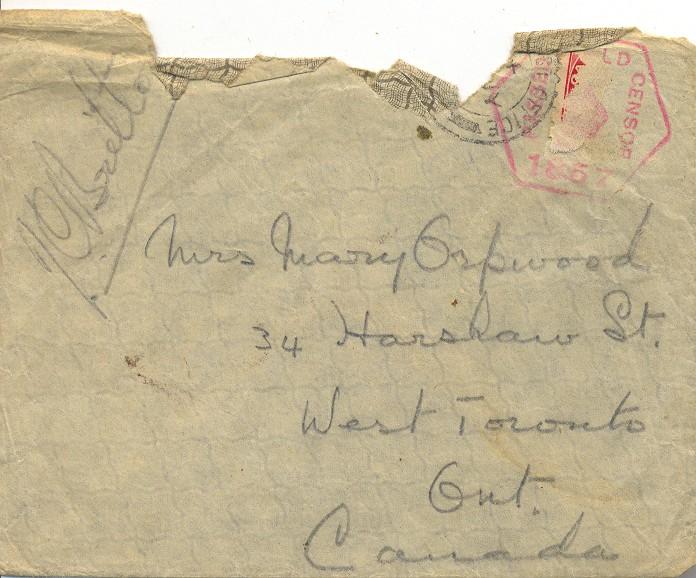 LD CENSOR
1857
Mrs Mary Orpwood
34 Harshaw St.
West Toronto
Ont.
Canada